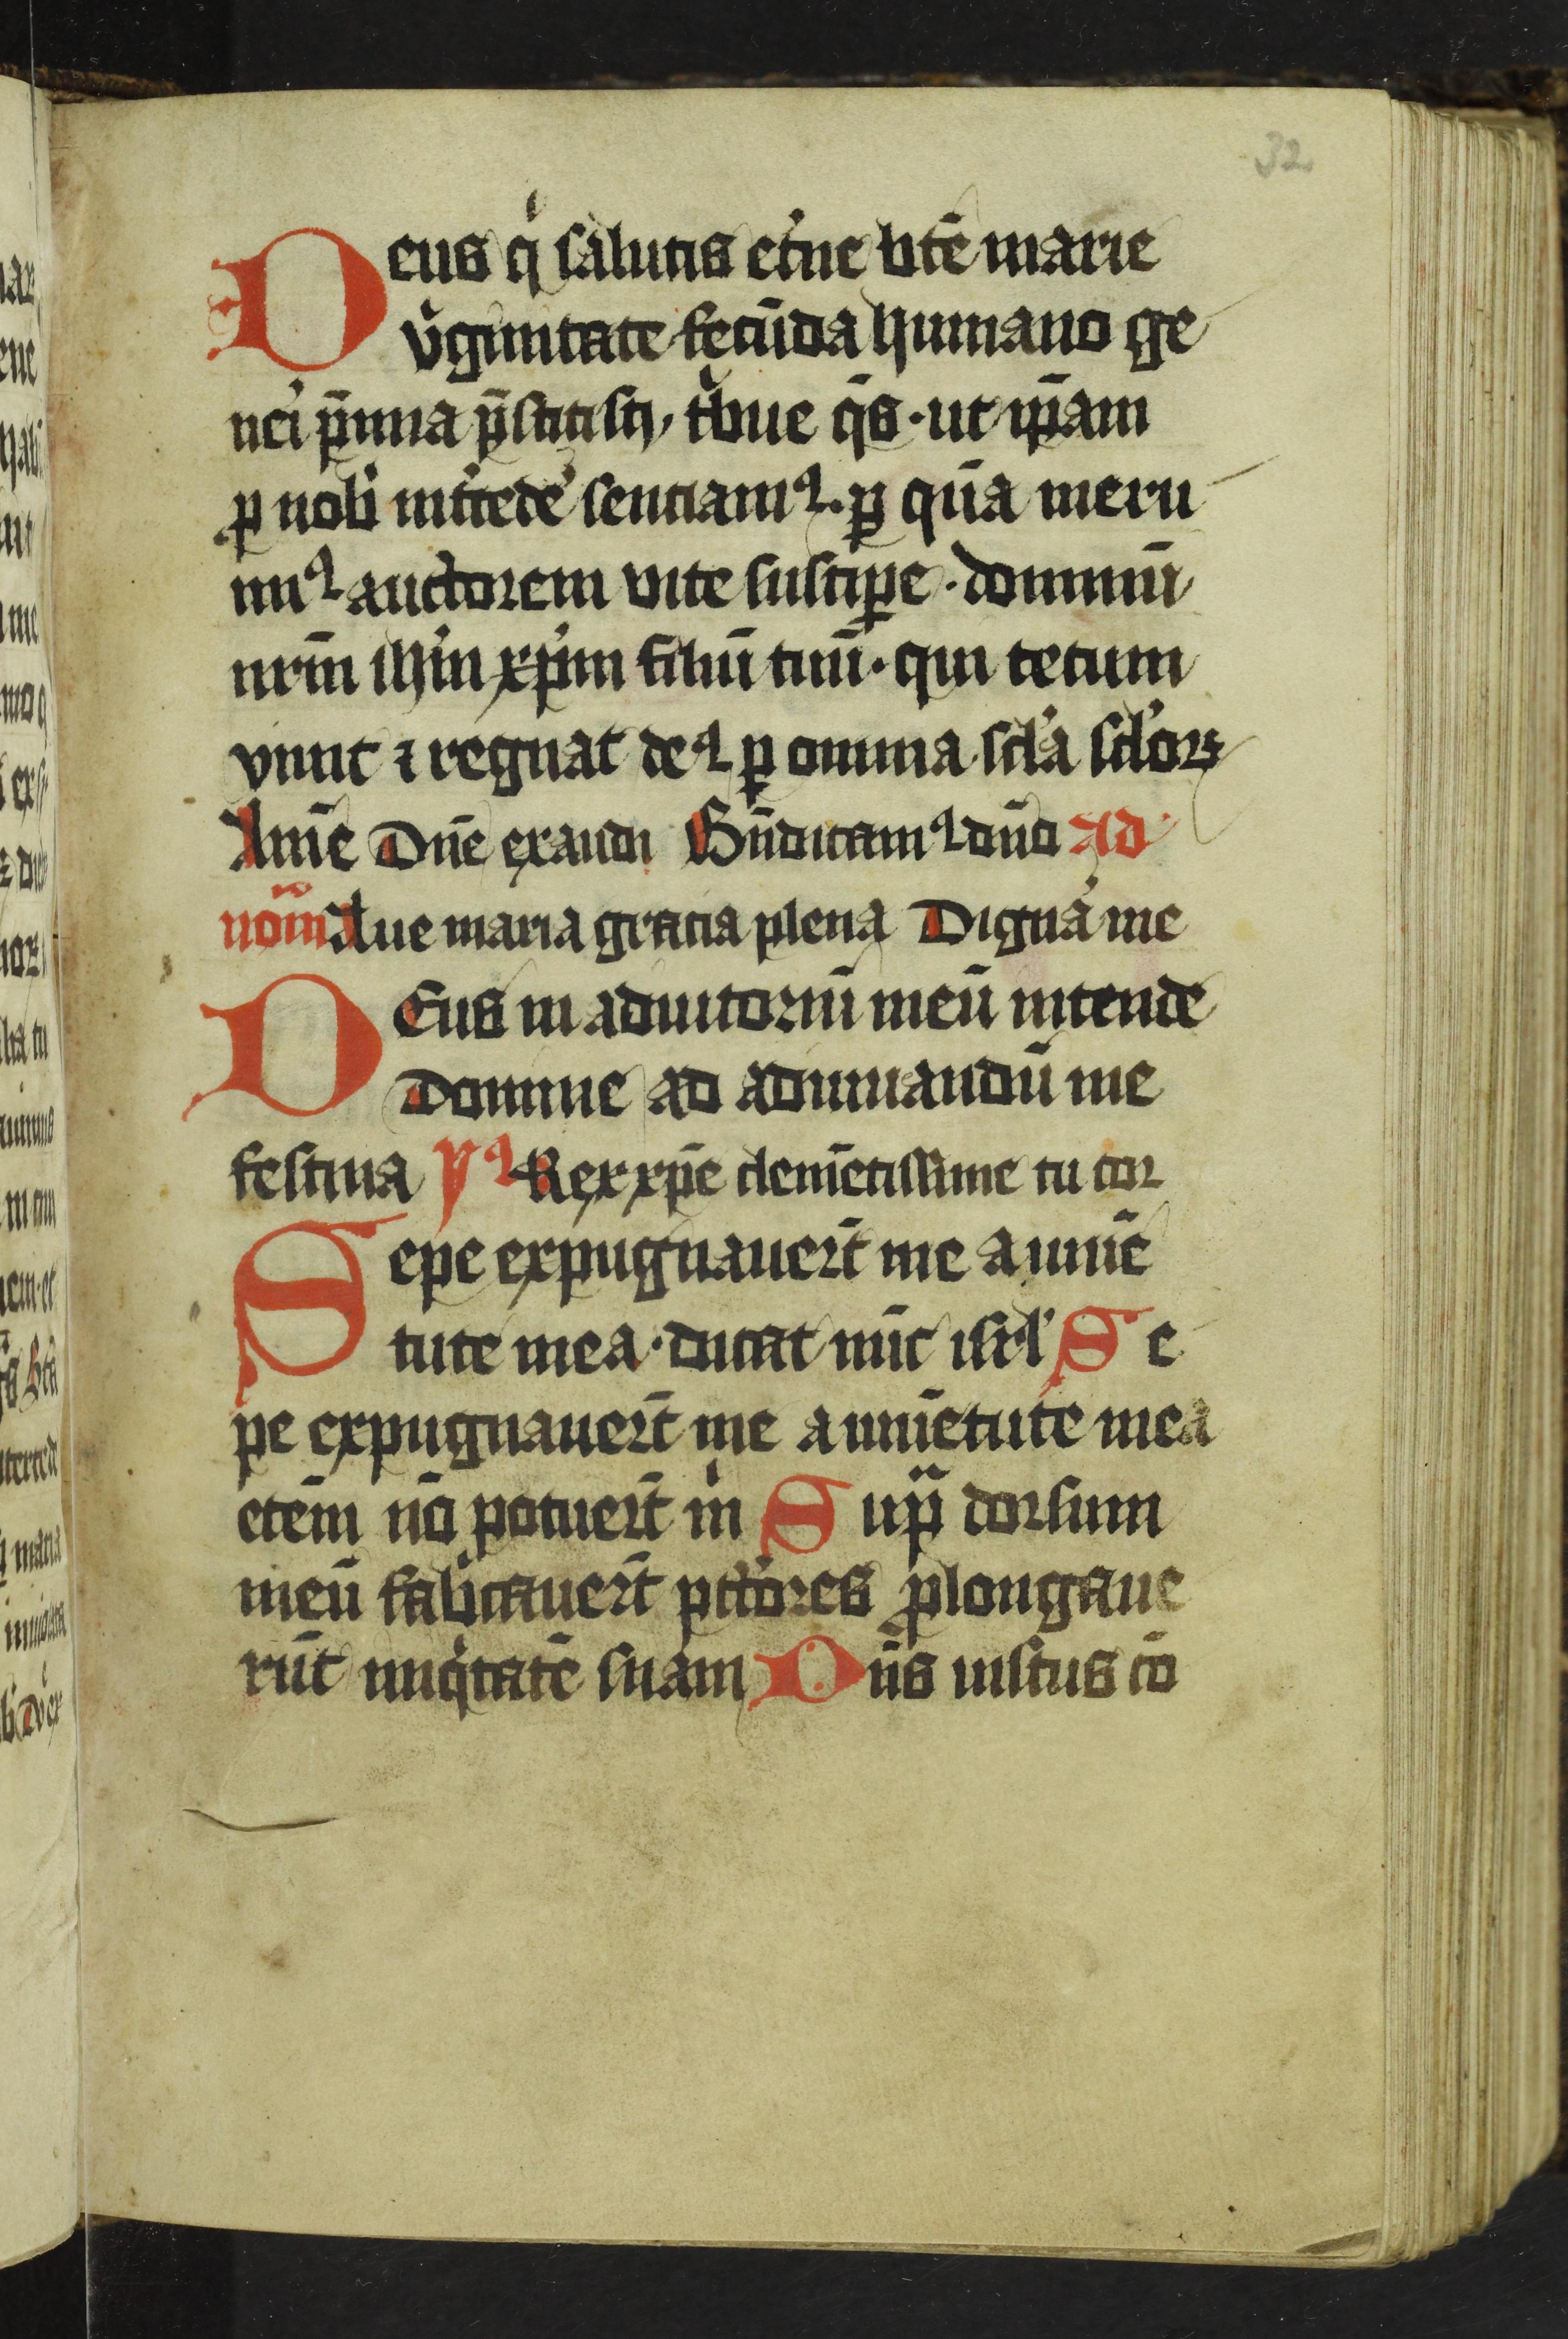 32
Deus qͥ salutis et'ne bte̅ marie
vͥginitate fecu̅da humano ge
n'i p̅mia p̅stitisti, tͥbue q̅s · ut ip̅am
ꝓ nob̅ int'cede' senciamꝰ. ꝑ qua̅ meru
imꝰ auctorem vite suscipe · dominu̅
nrm̅ ihm̅ xp̅m filiu̅ tuu̅ · qui tecum
viuit ⁊ regnat deꝰ ꝑ omnia scl'a scl'oꝝ
Ame̅ Dn̅e exaudi Bn̅dicamꝰ dn̅o Ad
nom̅ Aue maria gracia plena Digna' me
DEus in adiutoriu̅ meu̅ intende
Domine ad adiuuandu̅ me
festina yꝰ Rex xp̅e cleme̅tissime tu cor
Sepe expugnauer̅t me a iuue̅
tute mea · dicat nu̅c isrl' Se
pe expugnauer̅t me a iuue̅tute mea
eteni̅ no̅ potuer̅t mͥ Supͣ dorsum
meu̅ fabͥcauer̅t pctores ꝓlongaue
ru̅t iniqͥtate̅ suam Dn̅s iustus co̅